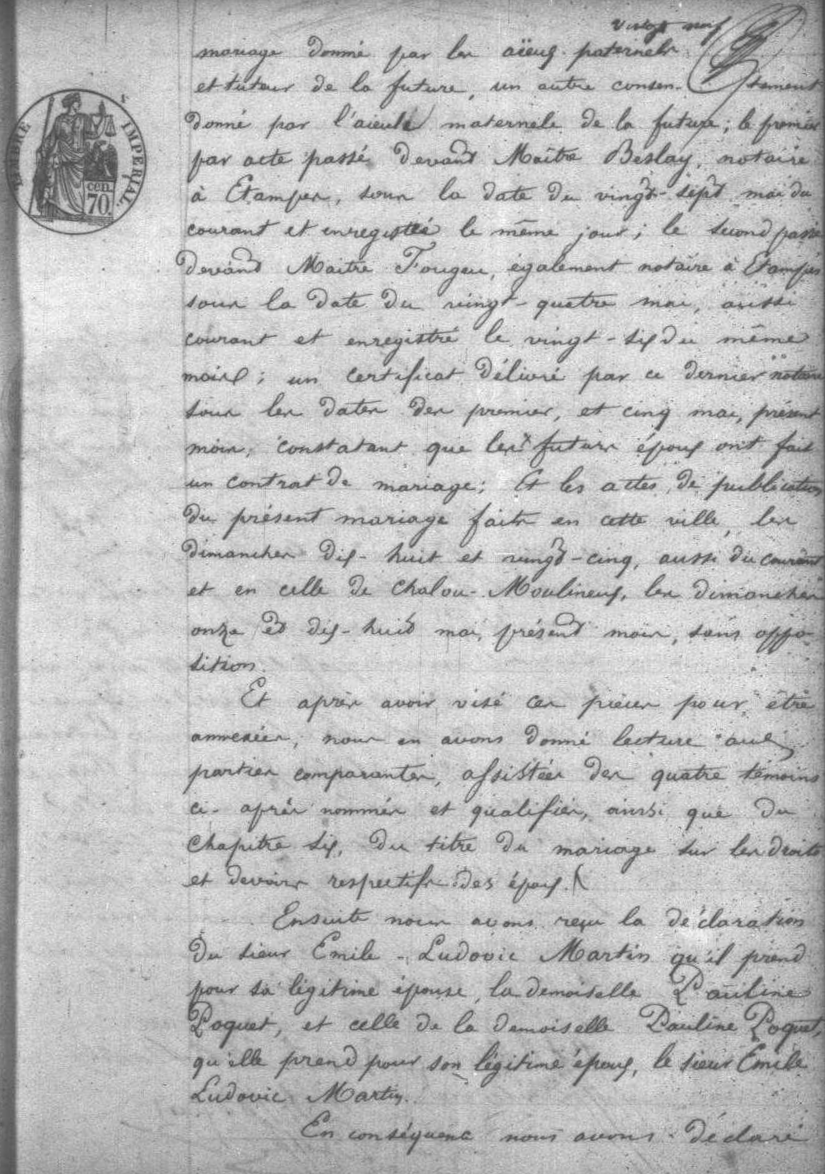 vingt neuf
mariage donné par les aïeux paternels
et tuteur de la future, un autre consen-tement
donné par l'aïeule maternelle de la future; le premier
par acte passé devant Maître Beslay, notaire
à Etampes, sous la date du vingt-sept mai du
courant et enregistré le même jour; le second passé
devant Maître Fougeu, également notaire à Etampes
sous la date du vingt-quatre mai, aussi
courant et enregistré le vingt-six du même
mois; un certificat délivré par ce dernier notaire
sous les dates des premier, et cinq mai, présent
mois, constatant que les futurs époux ont fait
un contrat de mariage; Et les actes de publication
du présent mariage faits en cette ville, les
dimanches dix-huit et vingt-cinq, aussi du courant
et en celle de Chalou-Moulineux, les dimanches
onze et dix-huit mai, présent mois, sans oppo-
sition.
Et après avoir visé ces pièces pour être
annexées, nous en avons donné lecture aux
parties comparantes, assistées des quatre témoins
ci-après nommés et qualifiés, ainsi que du
Chapitre six, du titre du mariage sur les droits
et devoirs respectifs des époux.
Ensuite nous avons reçu la déclaration
du sieur Emile-Ludovic Martin qu'il prend
pour sa légitime épouse, la demoiselle Pauline
Poquet, et celle de la demoiselle Pauline Poquet,
qu'elle prend pour son légitime époux, le sieur Emile
Ludovic Martin.
En conséquence nous avons déclaré
TIMBRE IMPERIAL
CEN.
70